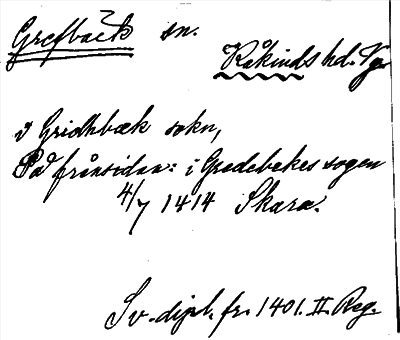 Grefbäck sn.
Kåkinds hd. Vg.
i Gridhbæk sokn,
På frånsidan: i Gredebekes sogen
4/7 1414 Skara.
Sv. dipl. fr. 1401. II. Reg.